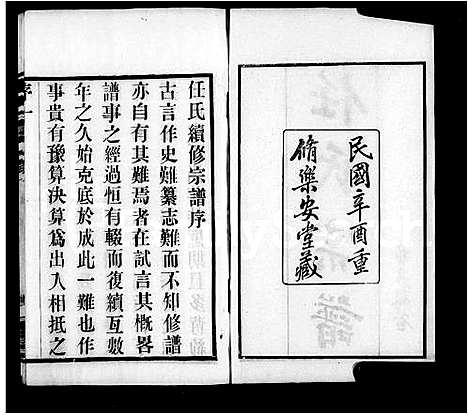 民國辛酉重
脩樂安堂藏
任氏續修宗譜序
古言作史難纂志難而不知修譜
亦自有其難焉者在試言其概畧
譜事之經過恒有輟而復續亙數
年之久始克底於成此一難也作
事貴有豫算決算爲出入相抵之
序一